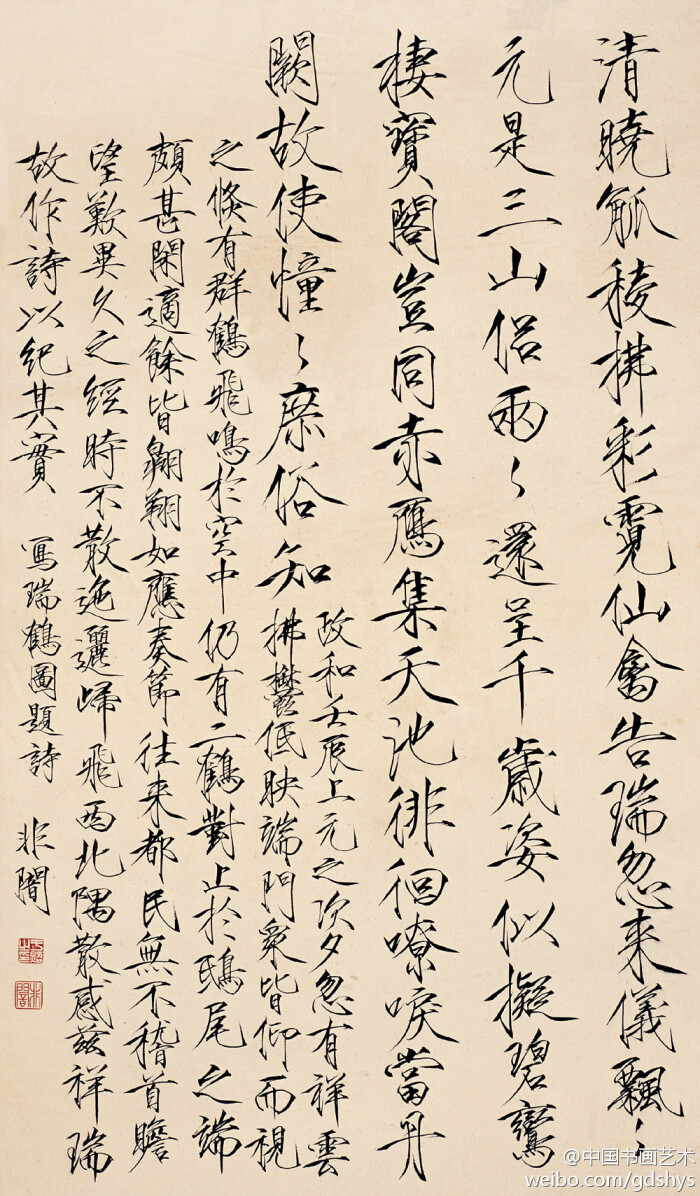 清曉觚稜拂彩霓仙禽告瑞忽来儀飄〻
元是三山侣兩〻還呈千歲姿似擬碧鸞
棲寶閣豈同赤鴈集天池徘徊嘹唳當丹
闕故使憧〻庶俗知
政和壬辰上元之次夕忽有祥雲
拂鬱低映端門衆皆仰而視
之倏有群鶴飛鳴於空中仍有二鶴對止於鴟尾之端
頗甚閑適餘皆翱翔如應奏節往来都民無不稽首瞻
望歎異久之經時不散迤邐歸飛西北隅散感茲祥瑞
故作詩以紀其實 寫瑞鶴圖題詩 非闇
非闇
@中国书画艺术
weibo.com/gdshys